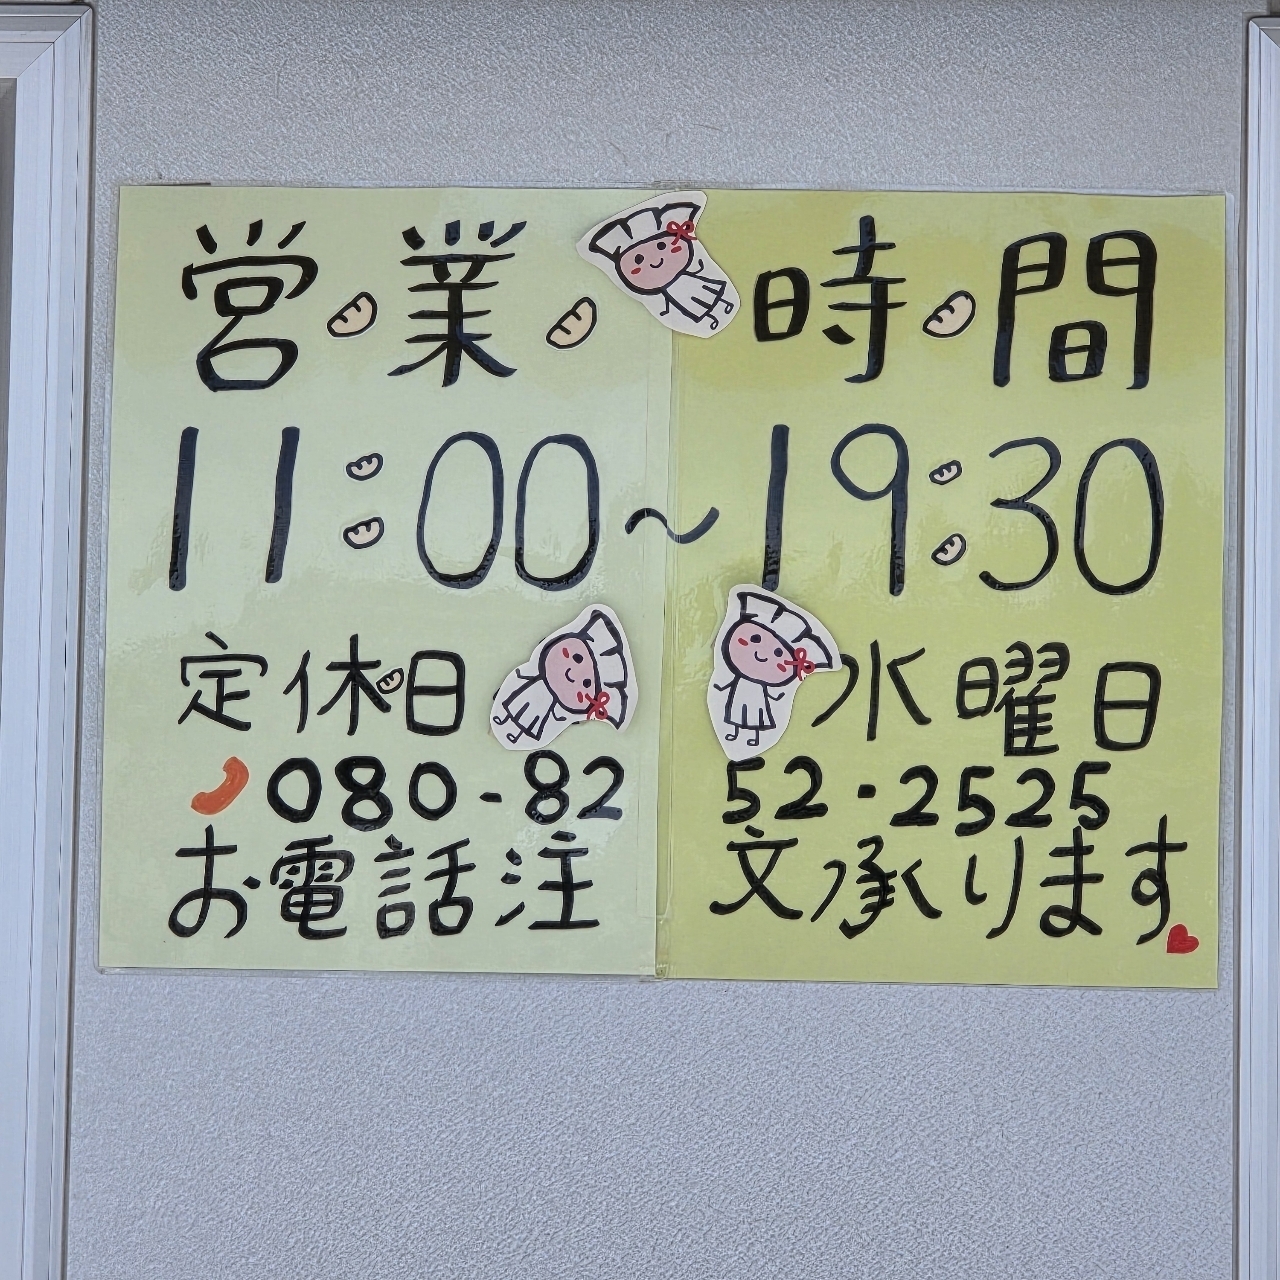 営業時間
11:00～19:30
定休日 水曜日
080-8252-2525
お電話注文承ります